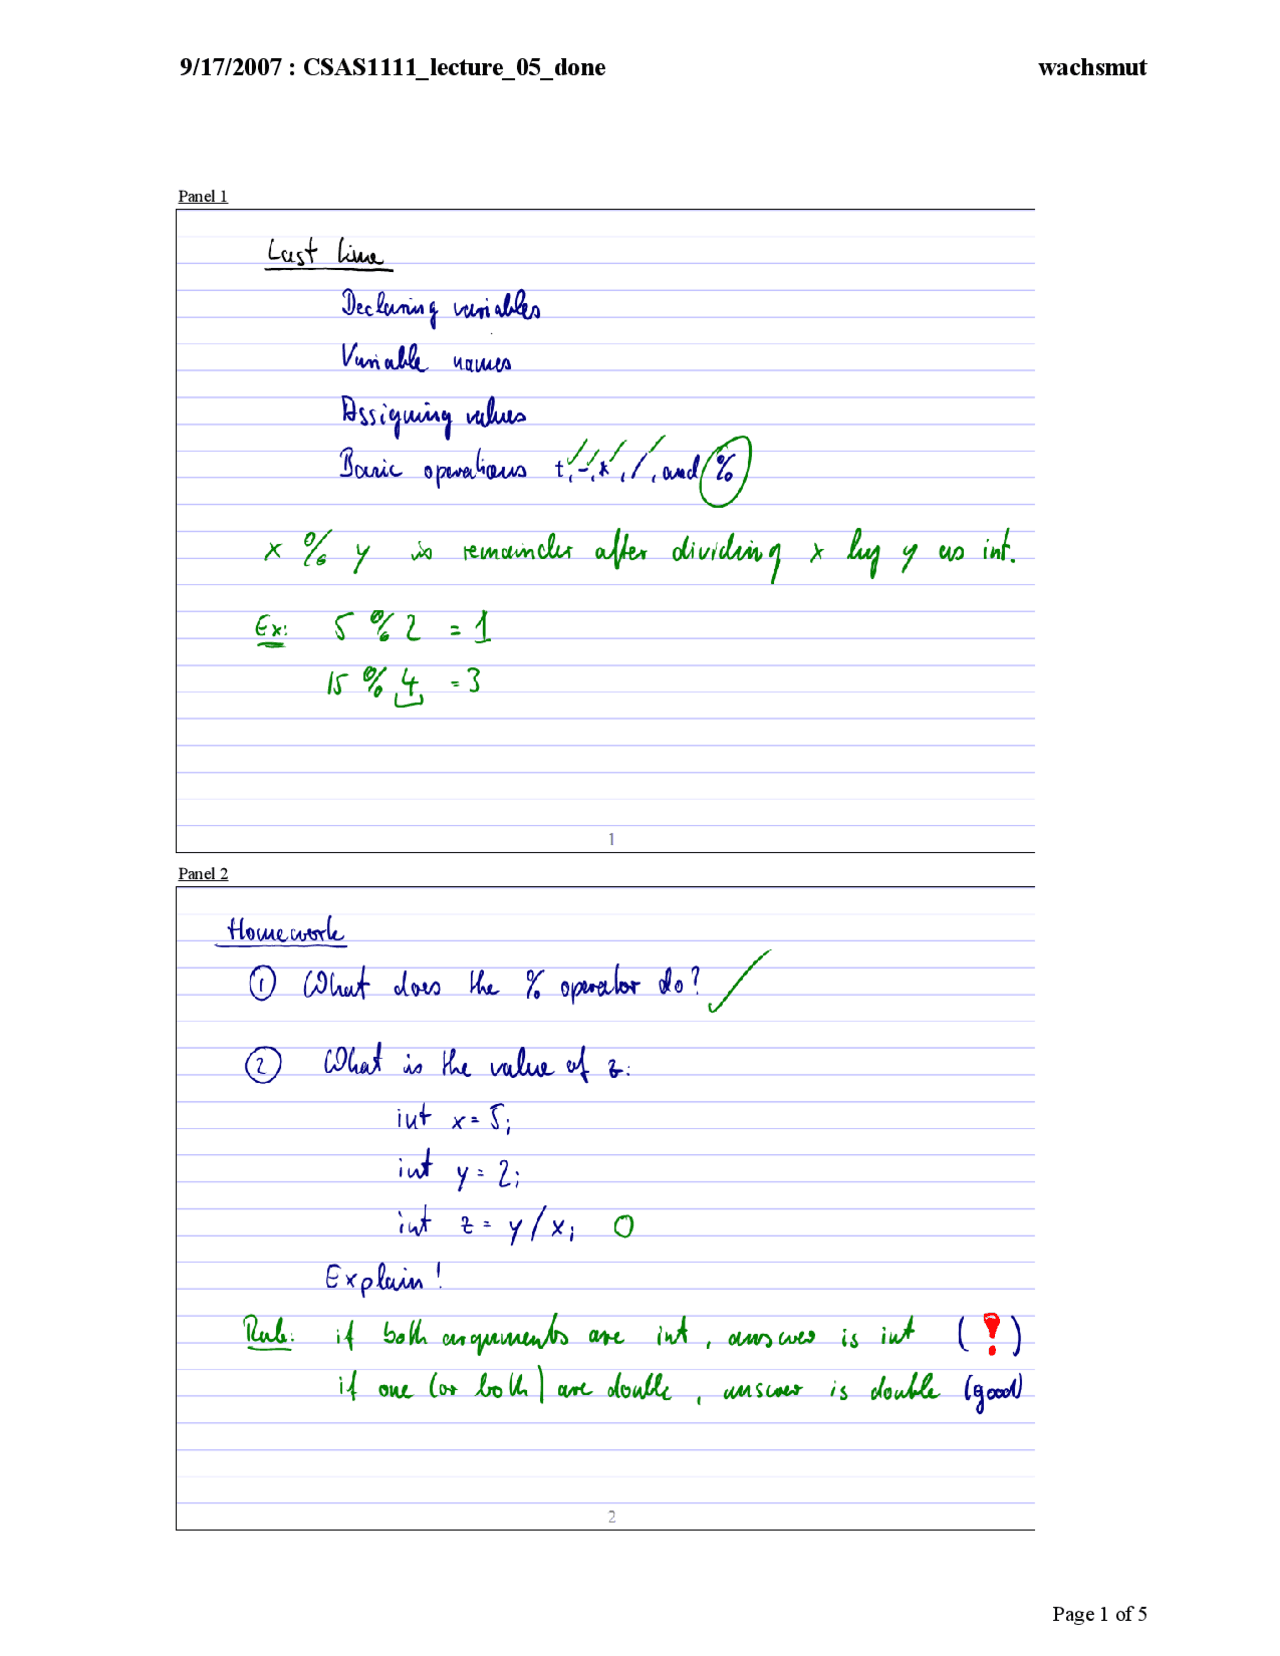 9/17/2007 : CSAS1111_lecture_05_done wachsmut
Panel 1
Last time
Declaring variables
Variable names
Assigning values
Basic operations +, -, *, /, and %
x % y is remainder after dividing x by y as int.
Ex: 5 % 2 = 1
15 % 4 = 3
1
Panel 2
Homework
① What does the % operator do?
② What is the value of z:
int x = 5;
int y = 2;
int z = y / x; 0
Explain!
Rule: if both arguments are int, answer is int (!)
if one (or both) are double, answer is double (good)
2
Page 1 of 5